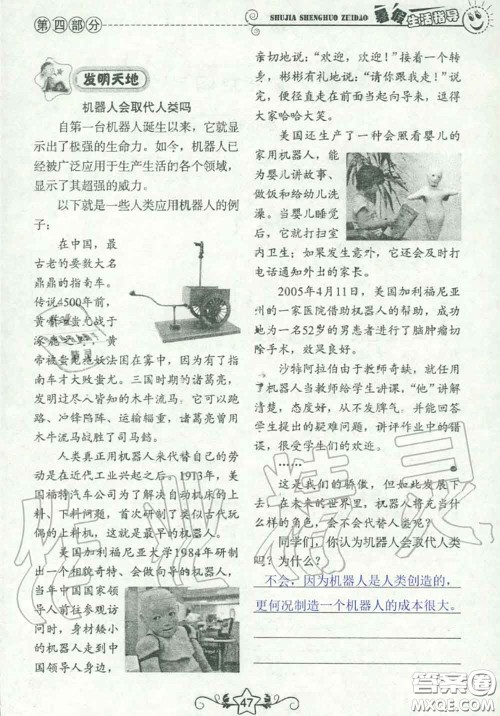 第四部分
SHUJIA SHENGHUO ZHIDAO
暑假生活指导
发明天地
机器人会取代人类吗
自第一台机器人诞生以来，它就显
示出了极强的生命力。如今，机器人已
经被广泛应用于生产生活的各个领域，
显示了其超强的威力。
以下就是一些人类应用机器人的例
子：
在中国，最
古老的要数大名
鼎鼎的指南车。
传说4500年前，
黄帝和蚩尤战于
帝被蚩尤施妖法困在雾中，因为有了指
南车才大败蚩尤。三国时期的诸葛亮，
发明过尽人皆知的木牛流马。它可以跑
路、冲锋陷阵、运输辎重，诸葛亮曾用
木牛流马战胜了司马懿。
人类真正用机器人来代替自己的劳
动是在近代工业兴起之后。1913年，美
国福特汽车公司为了解决自动机床的上
料、下料问题，首次研制了类似古代玩
偶的上料机，这就是最早的机器人。
美国加利福尼亚大学1984年研制
出一个相貌奇特、会做向导的机器人，
当年中国国家领
导人前往参观访
问时，身材矮小
的机器人走到中
国领导人身边，
亲切地说：“欢迎，欢迎！”接着一个转
身，彬彬有礼地说：“请你跟我走！”说
完，便径直走在前面当起向导来，逗得
大家哈哈大笑。
美国还生产了一种会照看婴儿的
家用机器人，能
为婴儿讲故事、
做饭和给幼儿洗
澡。当婴儿睡觉
后，它就打扫室
内卫生；如果发生意外，它还会及时打
电话通知外出的家长。
2005年4月11日，美国加利福尼亚
州的一家医院借助机器人的帮助，成功
地为一名52岁的男患者进行了脑肿瘤切
除手术，效果良好。
沙特阿拉伯由于教师奇缺，就任用
机器人当教师给学生讲课，“他”讲解
清楚，态度好，从不发脾气。并能回答
学生提出的疑难问题，讲评作业中的错
误，很受学生们的欢迎。
……
这是我们的骄傲，但如此发展下
去，在未来的世界里，机器人将充当什
么样的角色，会不会代替人类呢？
同学们，你认为机器人会取代人类
吗？为什么？
不会；因为机器人是人类创造的，
更何况制造一个机器人的成本很大。
47
作业精灵
答案圈
MXQE.COM